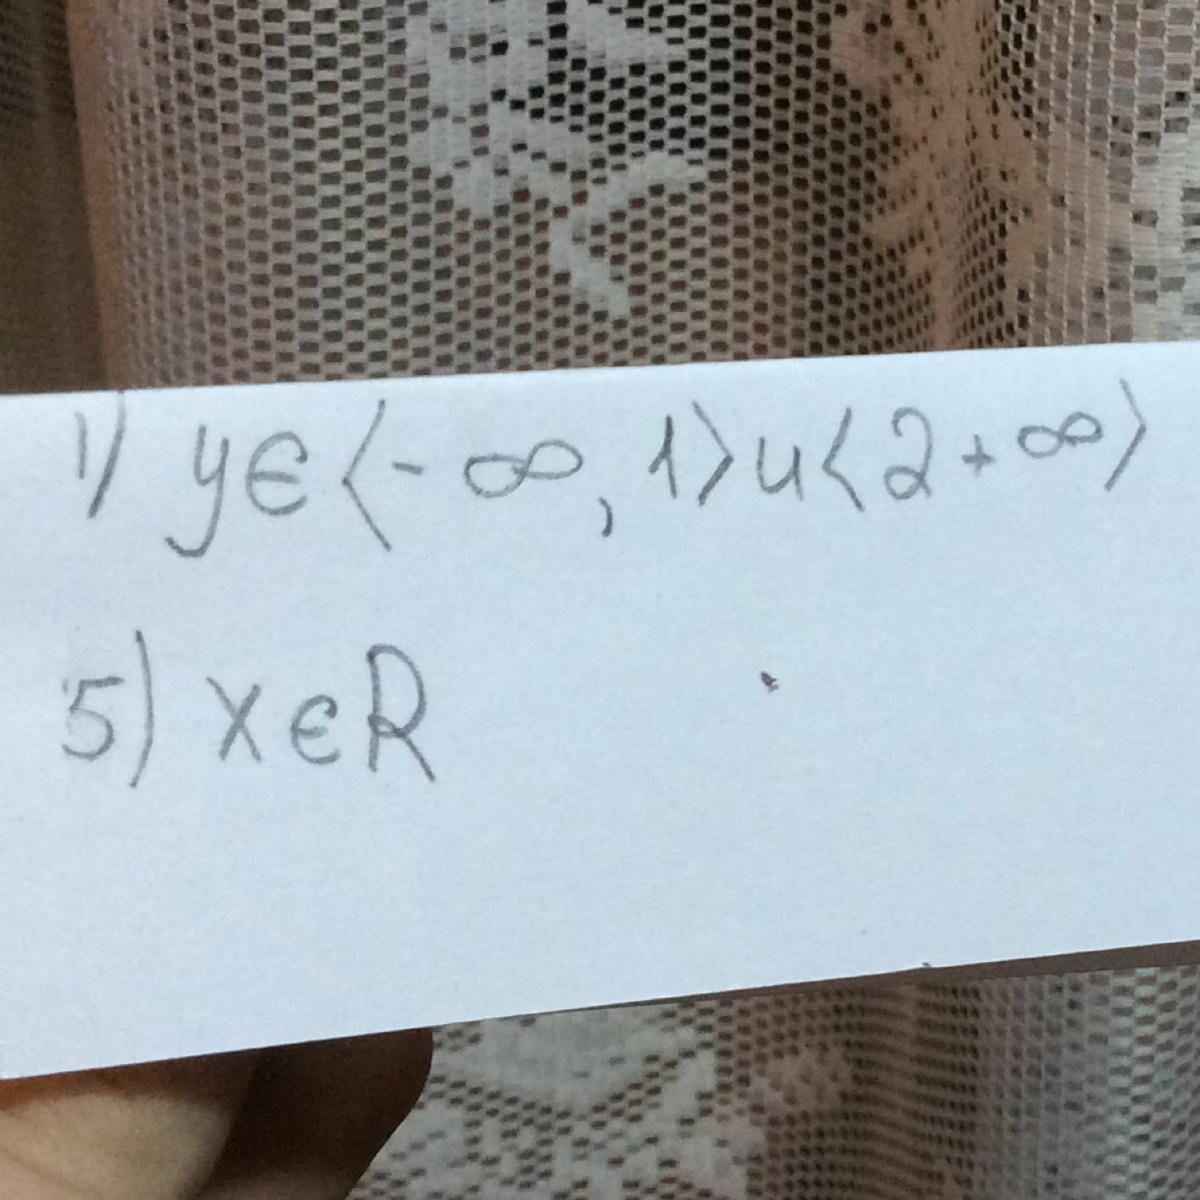 1) y∈⟨-∞, 1⟩u⟨2+∞⟩
5) x∈R